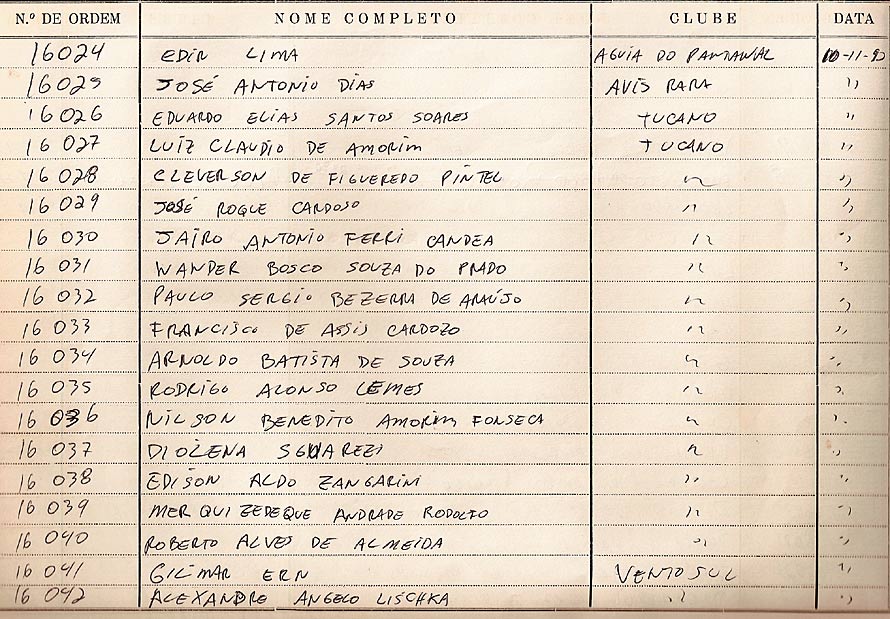 N.º DE ORDEM NOME COMPLETO CLUBE DATA
16024 EDIR LIMA AGUIA DO PANTANAL 10-11-90
16025 JOSÉ ANTONIO DIAS AVIS RARA "
16026 EDUARDO ELIAS SANTOS SOARES TUCANO "
16 027 LUIZ CLAUDIO DE AMORIM TUCANO "
16 028 CLEVERSON DE FIGUEREDO PINTEL " "
16 029 JOSÉ ROQUE CARDOSO " "
16 030 JAIRO ANTONIO FERRI CANDEA " "
16 031 WANDER BOSCO SOUZA DO PRADO " "
16 032 PAULO SERGIO BEZERRA DE ARAÚJO " "
16 033 FRANCISCO DE ASSIS CARDOZO " "
16 034 ARNOLDO BATISTA DE SOUZA " "
16 035 RODRIGO ALONSO LEMES " "
16 036 NILSON BENEDITO AMORIM FONSECA " "
16 037 DIOLENA " "
16 038 EDISON ALDO ZANGARINI " "
16 039 MERQUIZEDEQUE ANDRADE RODOLFO " "
16 040 ROBERTO ALVES DE ALMEIDA " "
16 041 GILMAR ERN VENTO SUL "
16 042 ALEXANDRE ANGELO LISCHKA " "